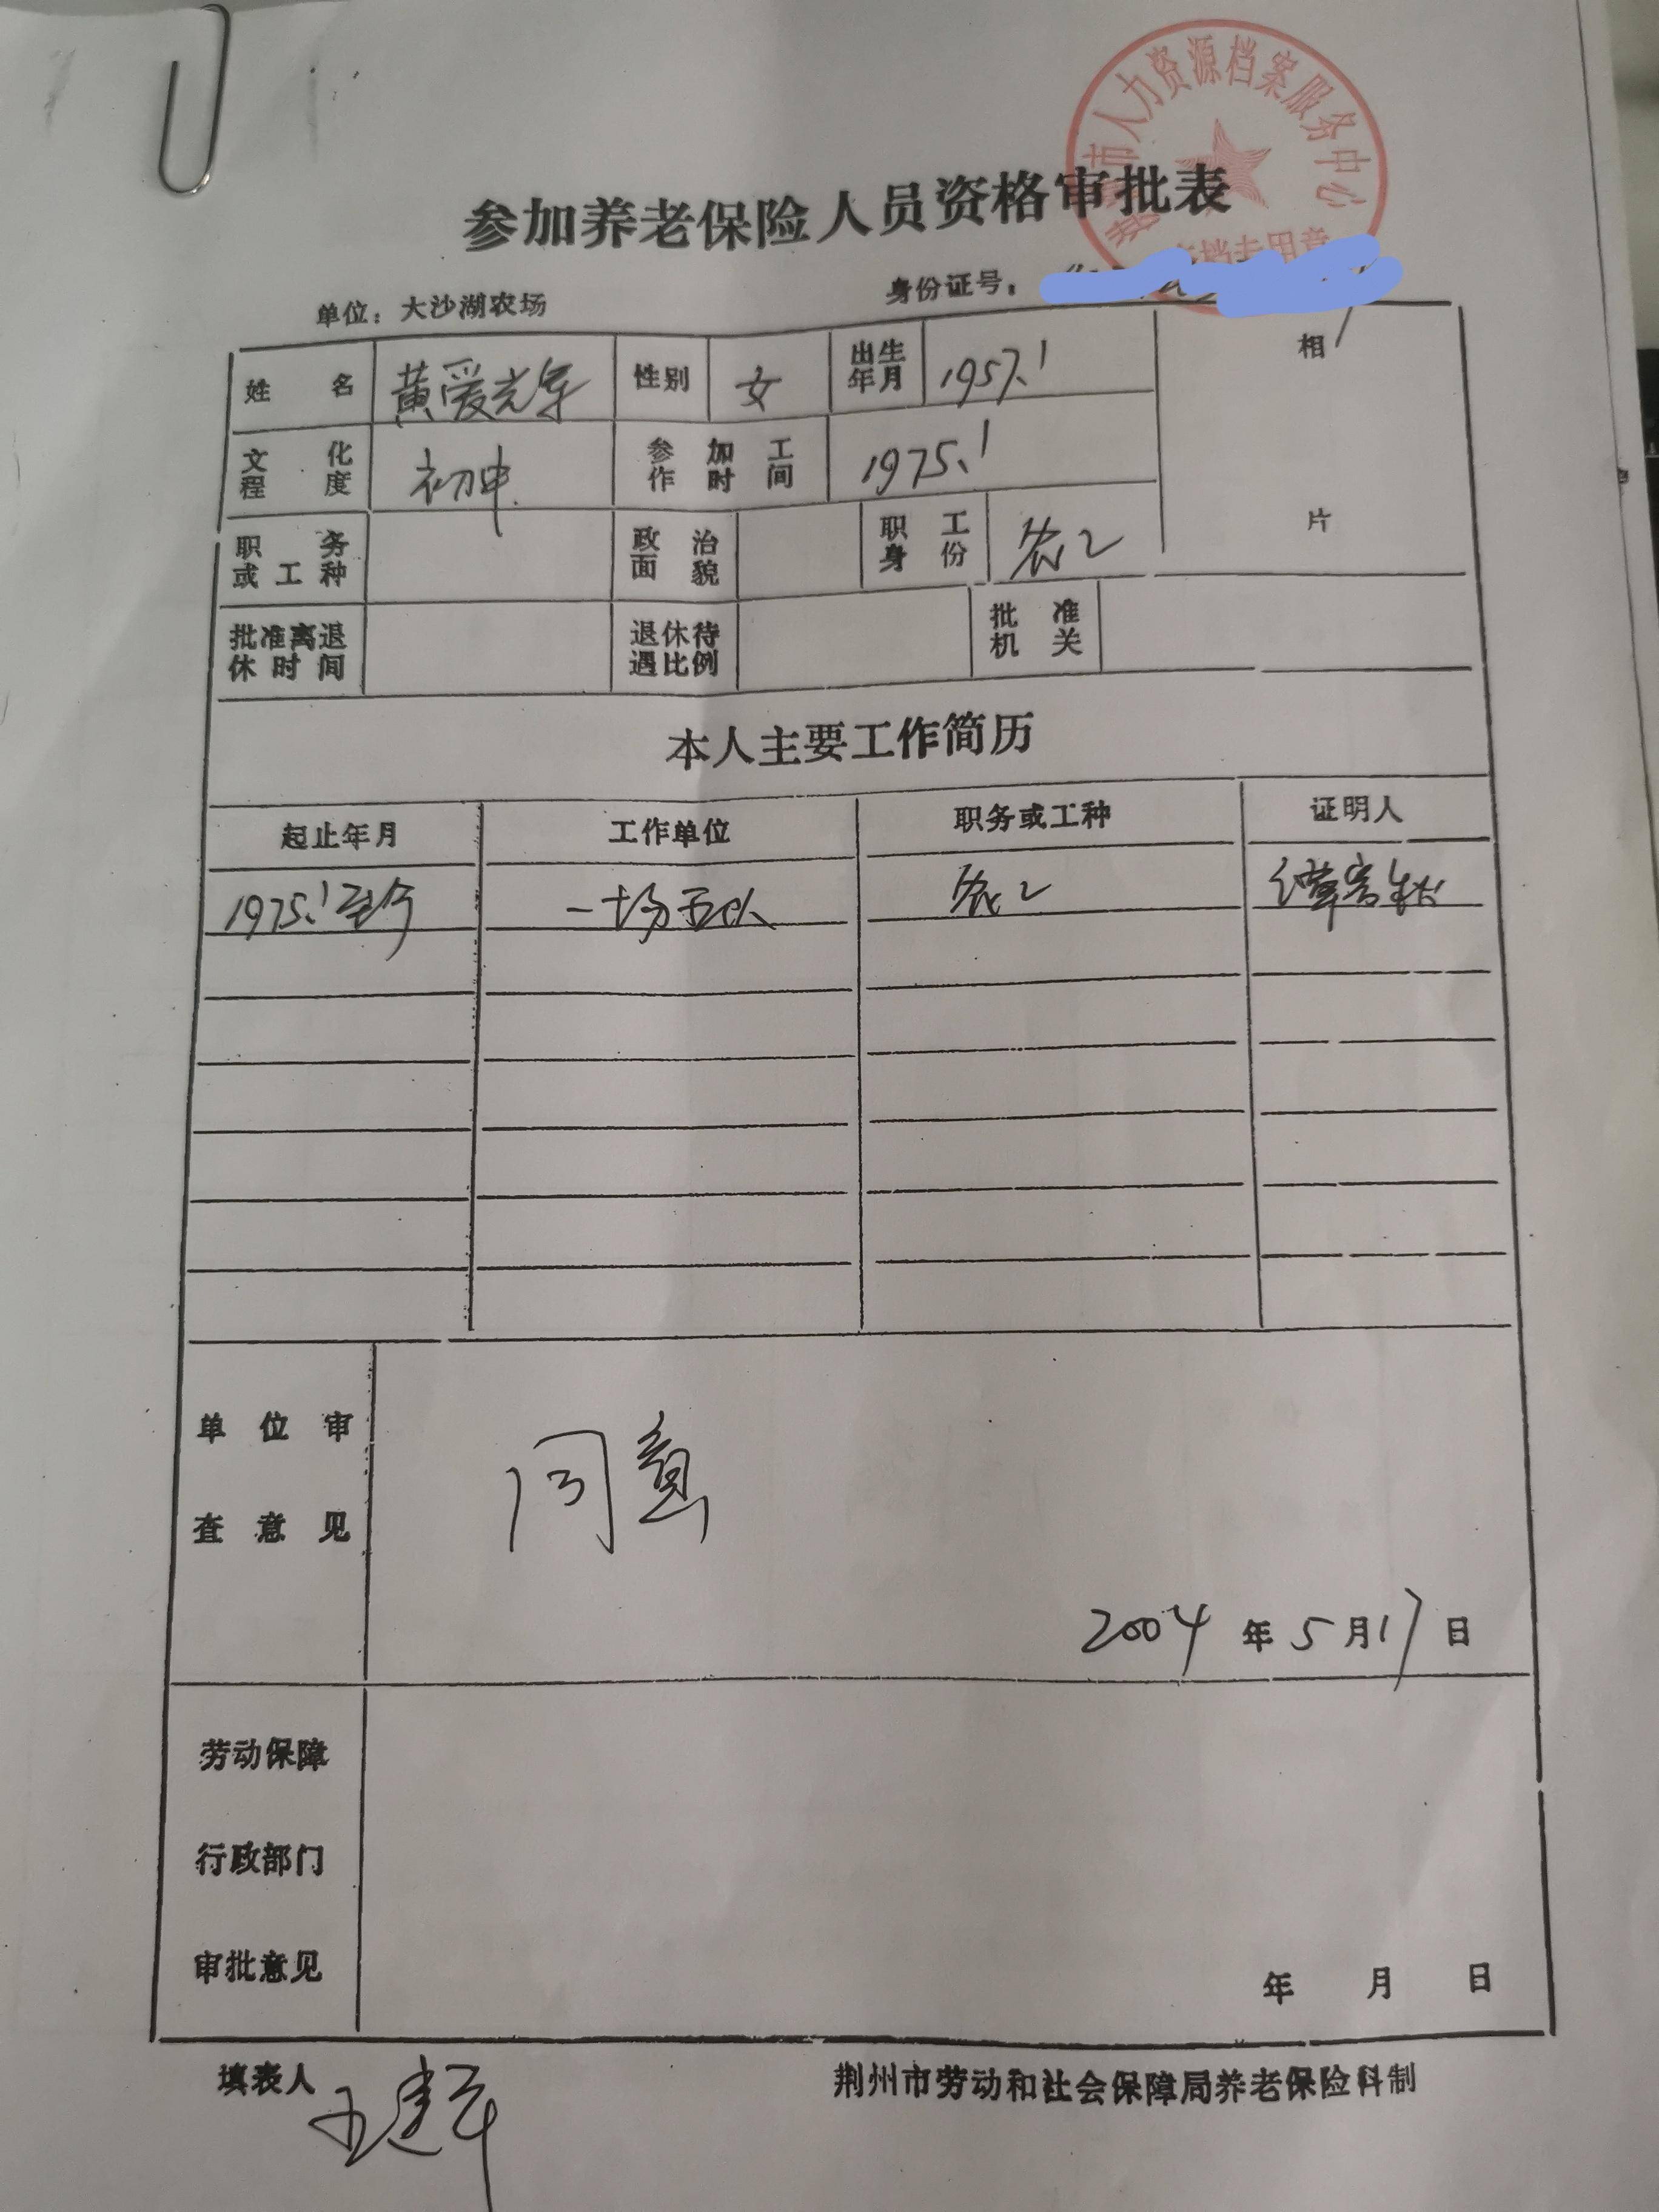 市人力资源档案服务中心
参加养老保险人员资格审批表
单位：大沙湖农场
身份证号：
姓名 黄爱 性别 女 出生年月 1957.1 相片
文化程度 初中 参加工作时间 1975.1
职务或工种 政治面貌 职工身份 农工
批准离退休时间 退休待遇比例 批准机关
本人主要工作简历
起止年月 工作单位 职务或工种 证明人
1975.1至今 一场五队 农工
单位审查意见
同意
2004年5月17日
劳动保障行政部门审批意见
年 月 日
填表人
荆州市劳动和社会保障局养老保险科制